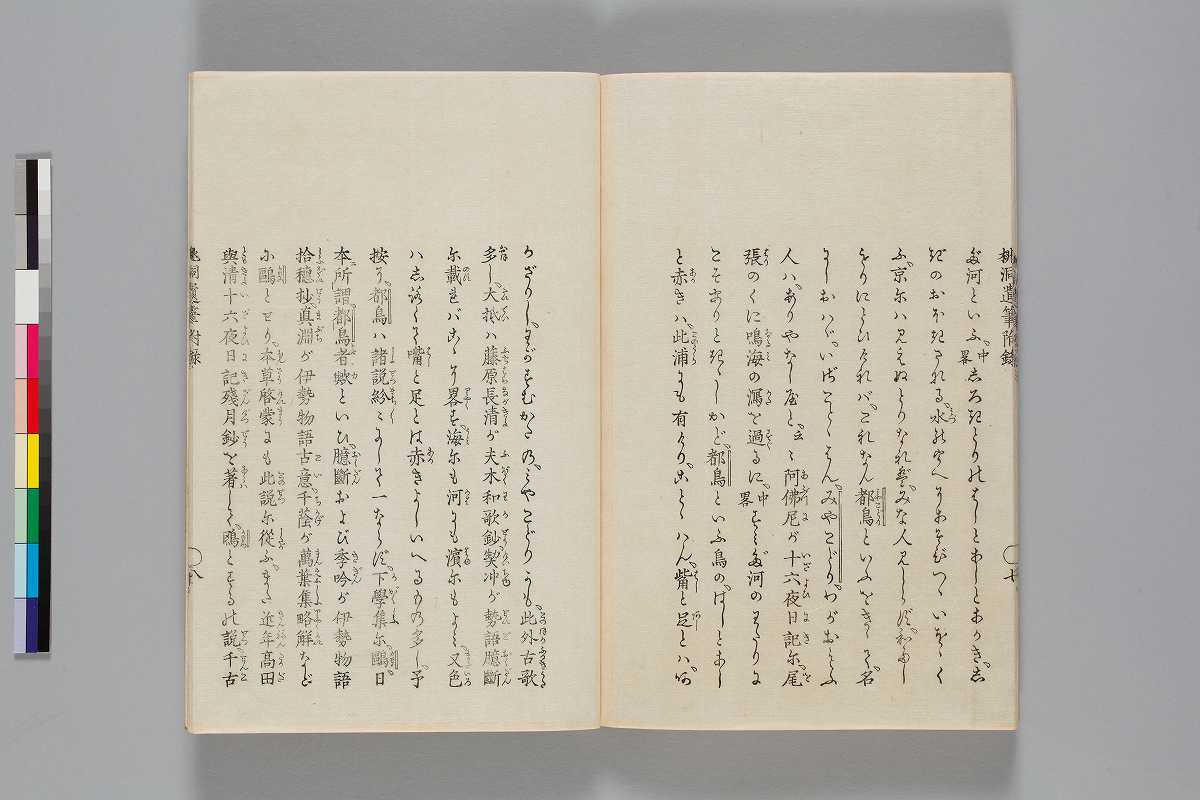 桃洞遺筆附録
七
だ河といふ中畧しろきとりのはしとあしとあかきし
ぎのおほきさなる水のうへにあそびつゝいをゝく
ふ京にハ見えぬとりなれバみな人見しらずわたし
もりにとひけれバこれなん都鳥といふをきゝて名
にしおはゞいざことゝはんみやこどりわがおもふ
人ハありやなしやと云〻阿佛尼が十六夜日記に尾
張のくに鳴海の潟を過るに中畧すみだ河のわたりに
こそありときゝしかど都鳥といふ鳥のはしとあし
と赤きハ此浦にも有けりことゝハん觜と足とハ
かざりしわがすむかたのみやこどりかも此外古歌
多し大抵ハ藤原長清が夫木和歌鈔契冲が勢語臆斷
に載れバこゝに畧す海にも河にも濱にもよミ又色
ハしろくて嘴と足とは赤きよしいへるもの多し予
按に都鳥ハ諸説紛〻にして一ならず下學集に鷗日
本所謂都鳥者歟といひ臆斷および季吟が伊勢物語
拾穗抄真淵が伊勢物語古意千蔭が萬葉集略解など
に鷗とせり本草啓蒙にも此説に從ふまた近年高田
與清十六夜日記殘月鈔を著して鴫とするの説千古
桃洞遺筆附録
八